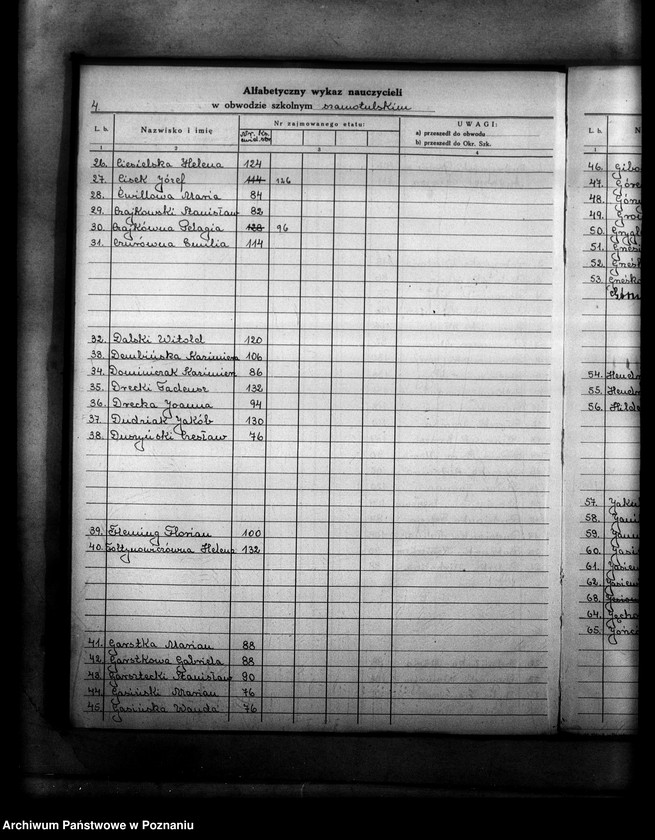 Alfabetyczny wykaz nauczycieli
4. w obwodzie szkolnym szamotulskim
L. b. Nazwisko i imię Nr zajmowanego etatu: UWAGI:
a) przeszedł do obwodu
b) przeszedł do Okr. Szk.
1 2 3 4
26. Ciesielska Helena 124
27. Cisek Józef 114 126
28. Ćwillowa Maria 84
29. Czajkowski Stanisław 82
30. Czajkówna Pelagia 128 96
31. Czurówna Emilia 114
32. Dalski Witold 120
33. Dembińska Kazimiera 106
34. Dominiczak Kazimierz 86
35. Drecki Tadeusz 132
36. Drecka Joanna 94
37. Dudziak Jakób 130
38. Duszyński Czesław 76
39. Fleming Florian 100
40. Foltynowiczówna Helena 132
41. Garstka Marian 88
42. Garstkowa Gabriela 88
43. Garsztecki Stanisław 90
44. Gasiński Marian 76
45. Gasińska Wanda 76
L. b. N
1
46.
47.
48.
49.
50.
51.
52.
53.
54.
55.
56.
57.
58.
59.
60.
61.
62.
63.
64.
65.
Archiwum Państwowe w Poznaniu